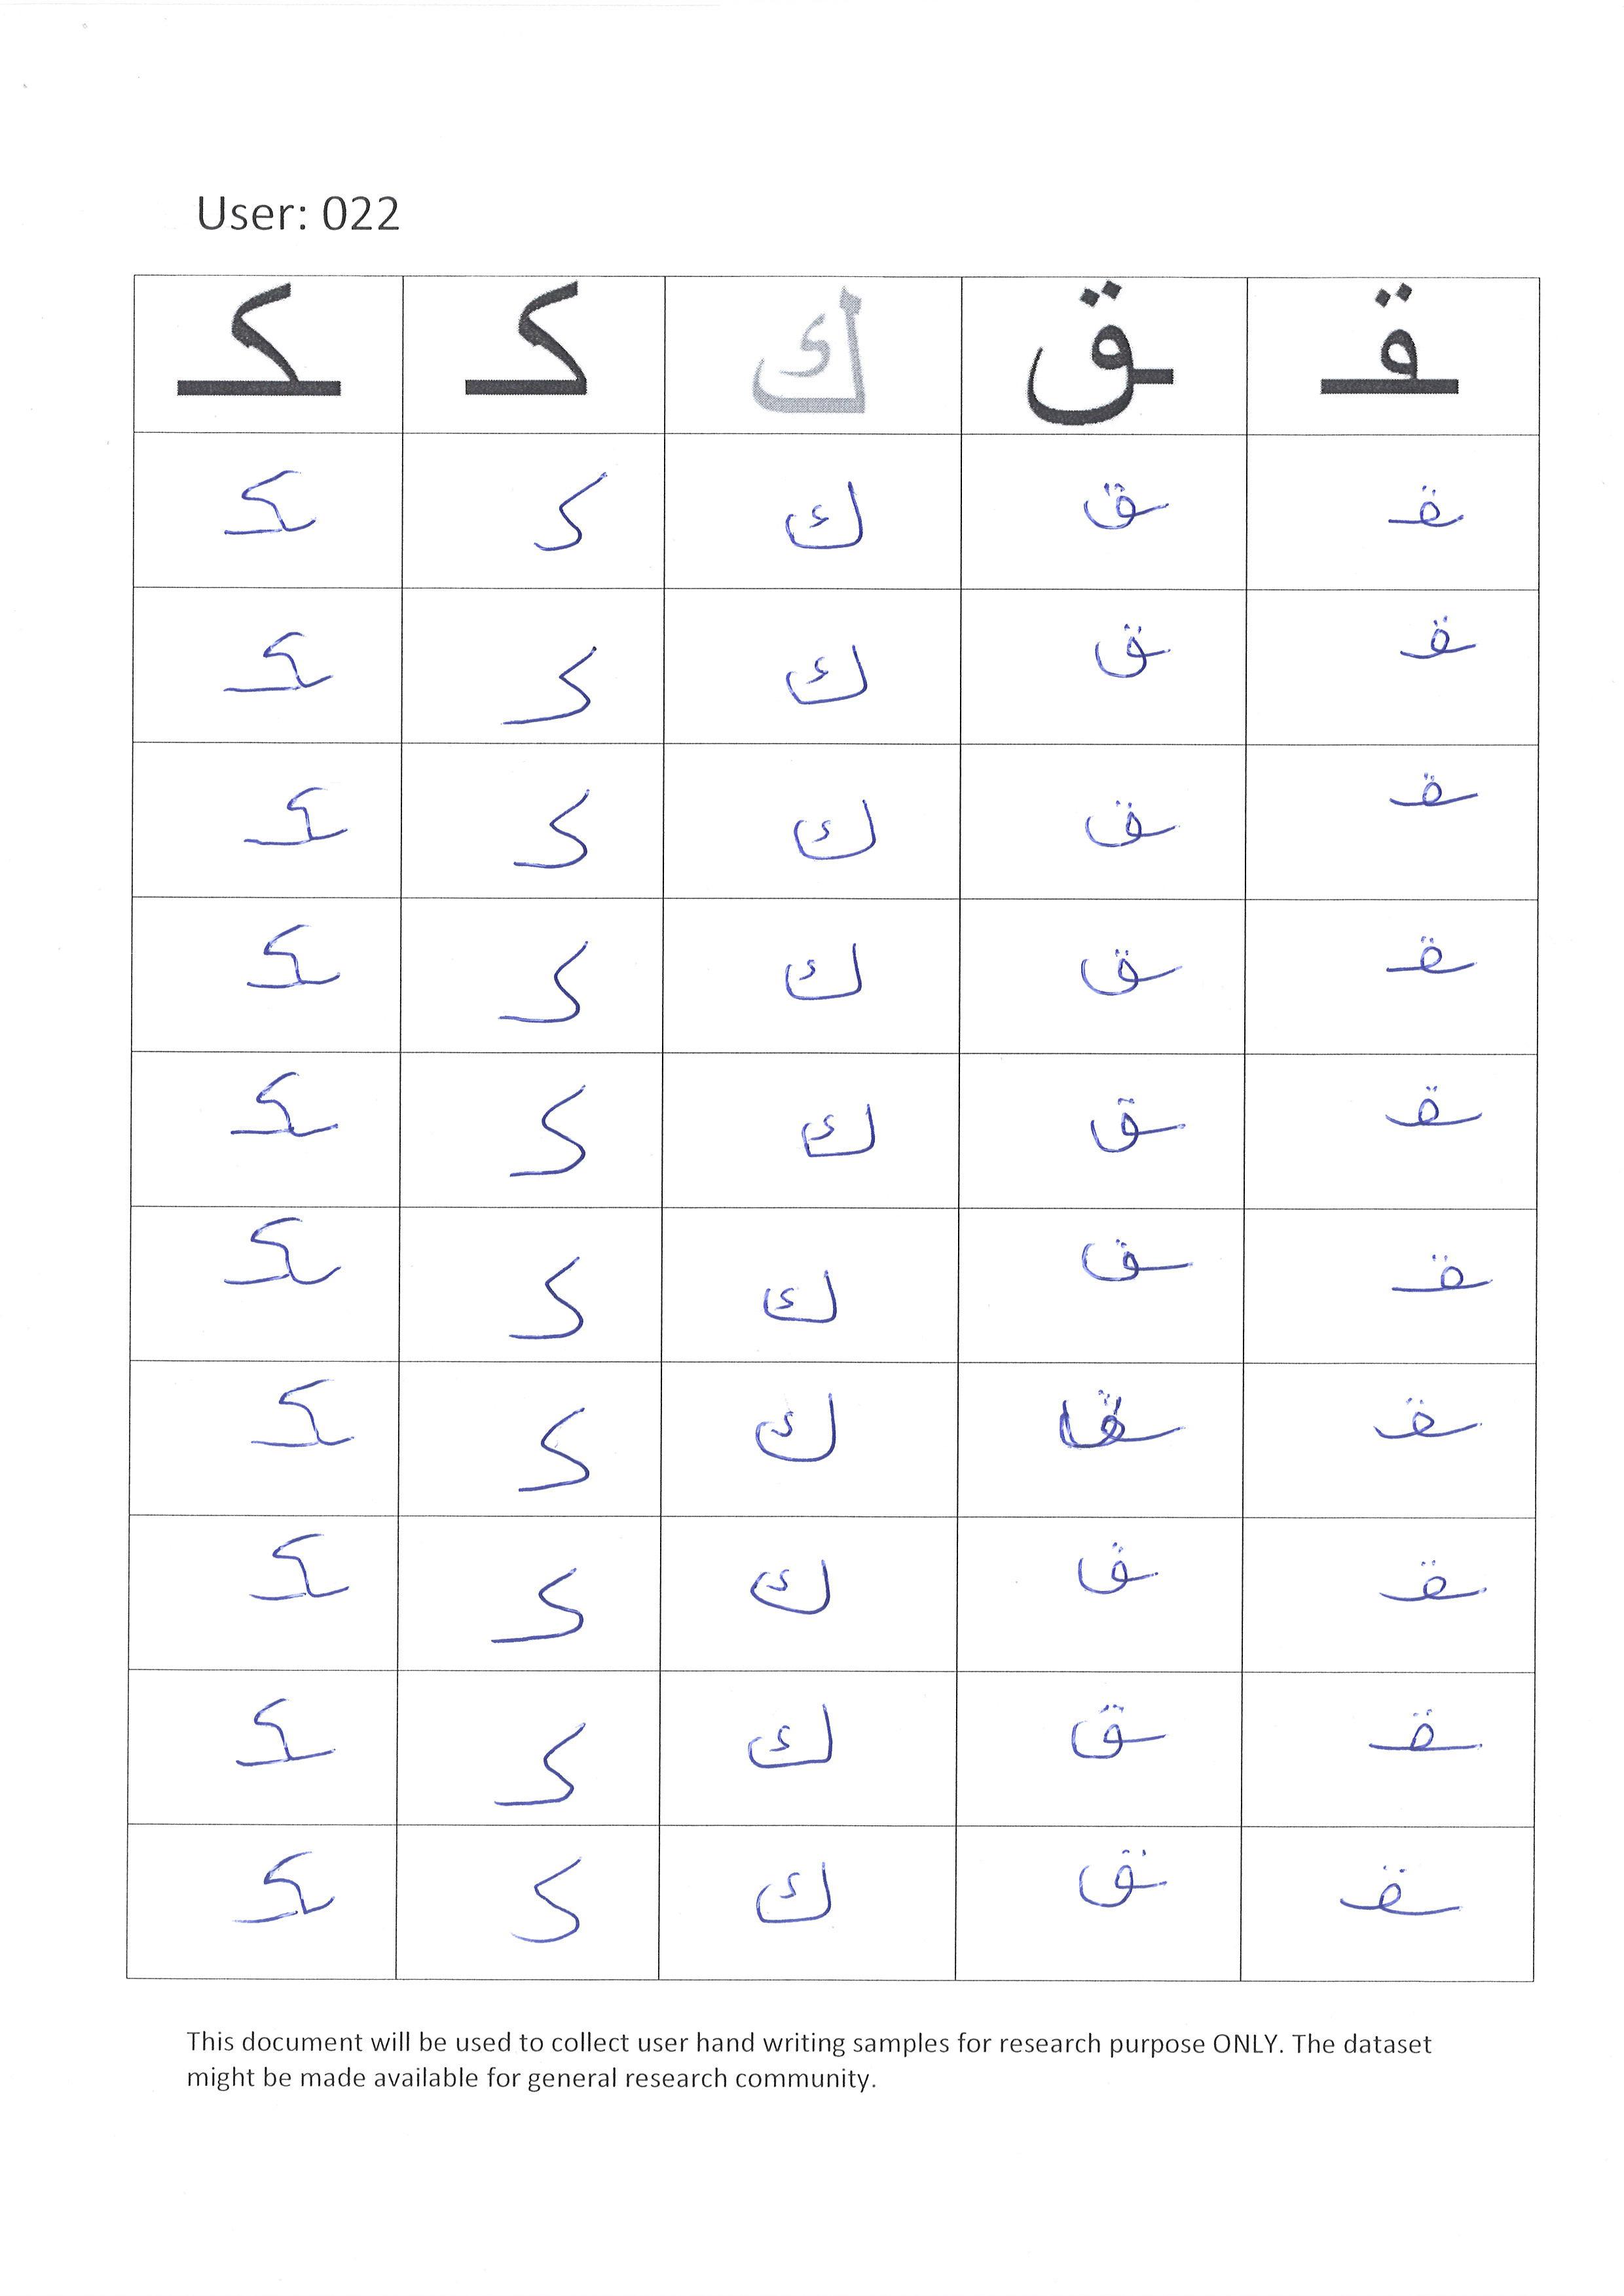 User: 022
ـقـ ـق ك كـ ـكـ
ـقـ ـق ك كـ ـكـ
ـقـ ـق ك كـ ـكـ
ـقـ ـق ك كـ ـكـ
ـقـ ـق ك كـ ـكـ
ـقـ ـق ك كـ ـكـ
ـقـ ـق ك كـ ـكـ
ـقـ ـق ك كـ ـكـ
ـقـ ـق ك كـ ـكـ
ـقـ ـق ك كـ ـكـ
ـقـ ـق ك كـ ـكـ
This document will be used to collect user hand writing samples for research purpose ONLY. The dataset
might be made available for general research community.